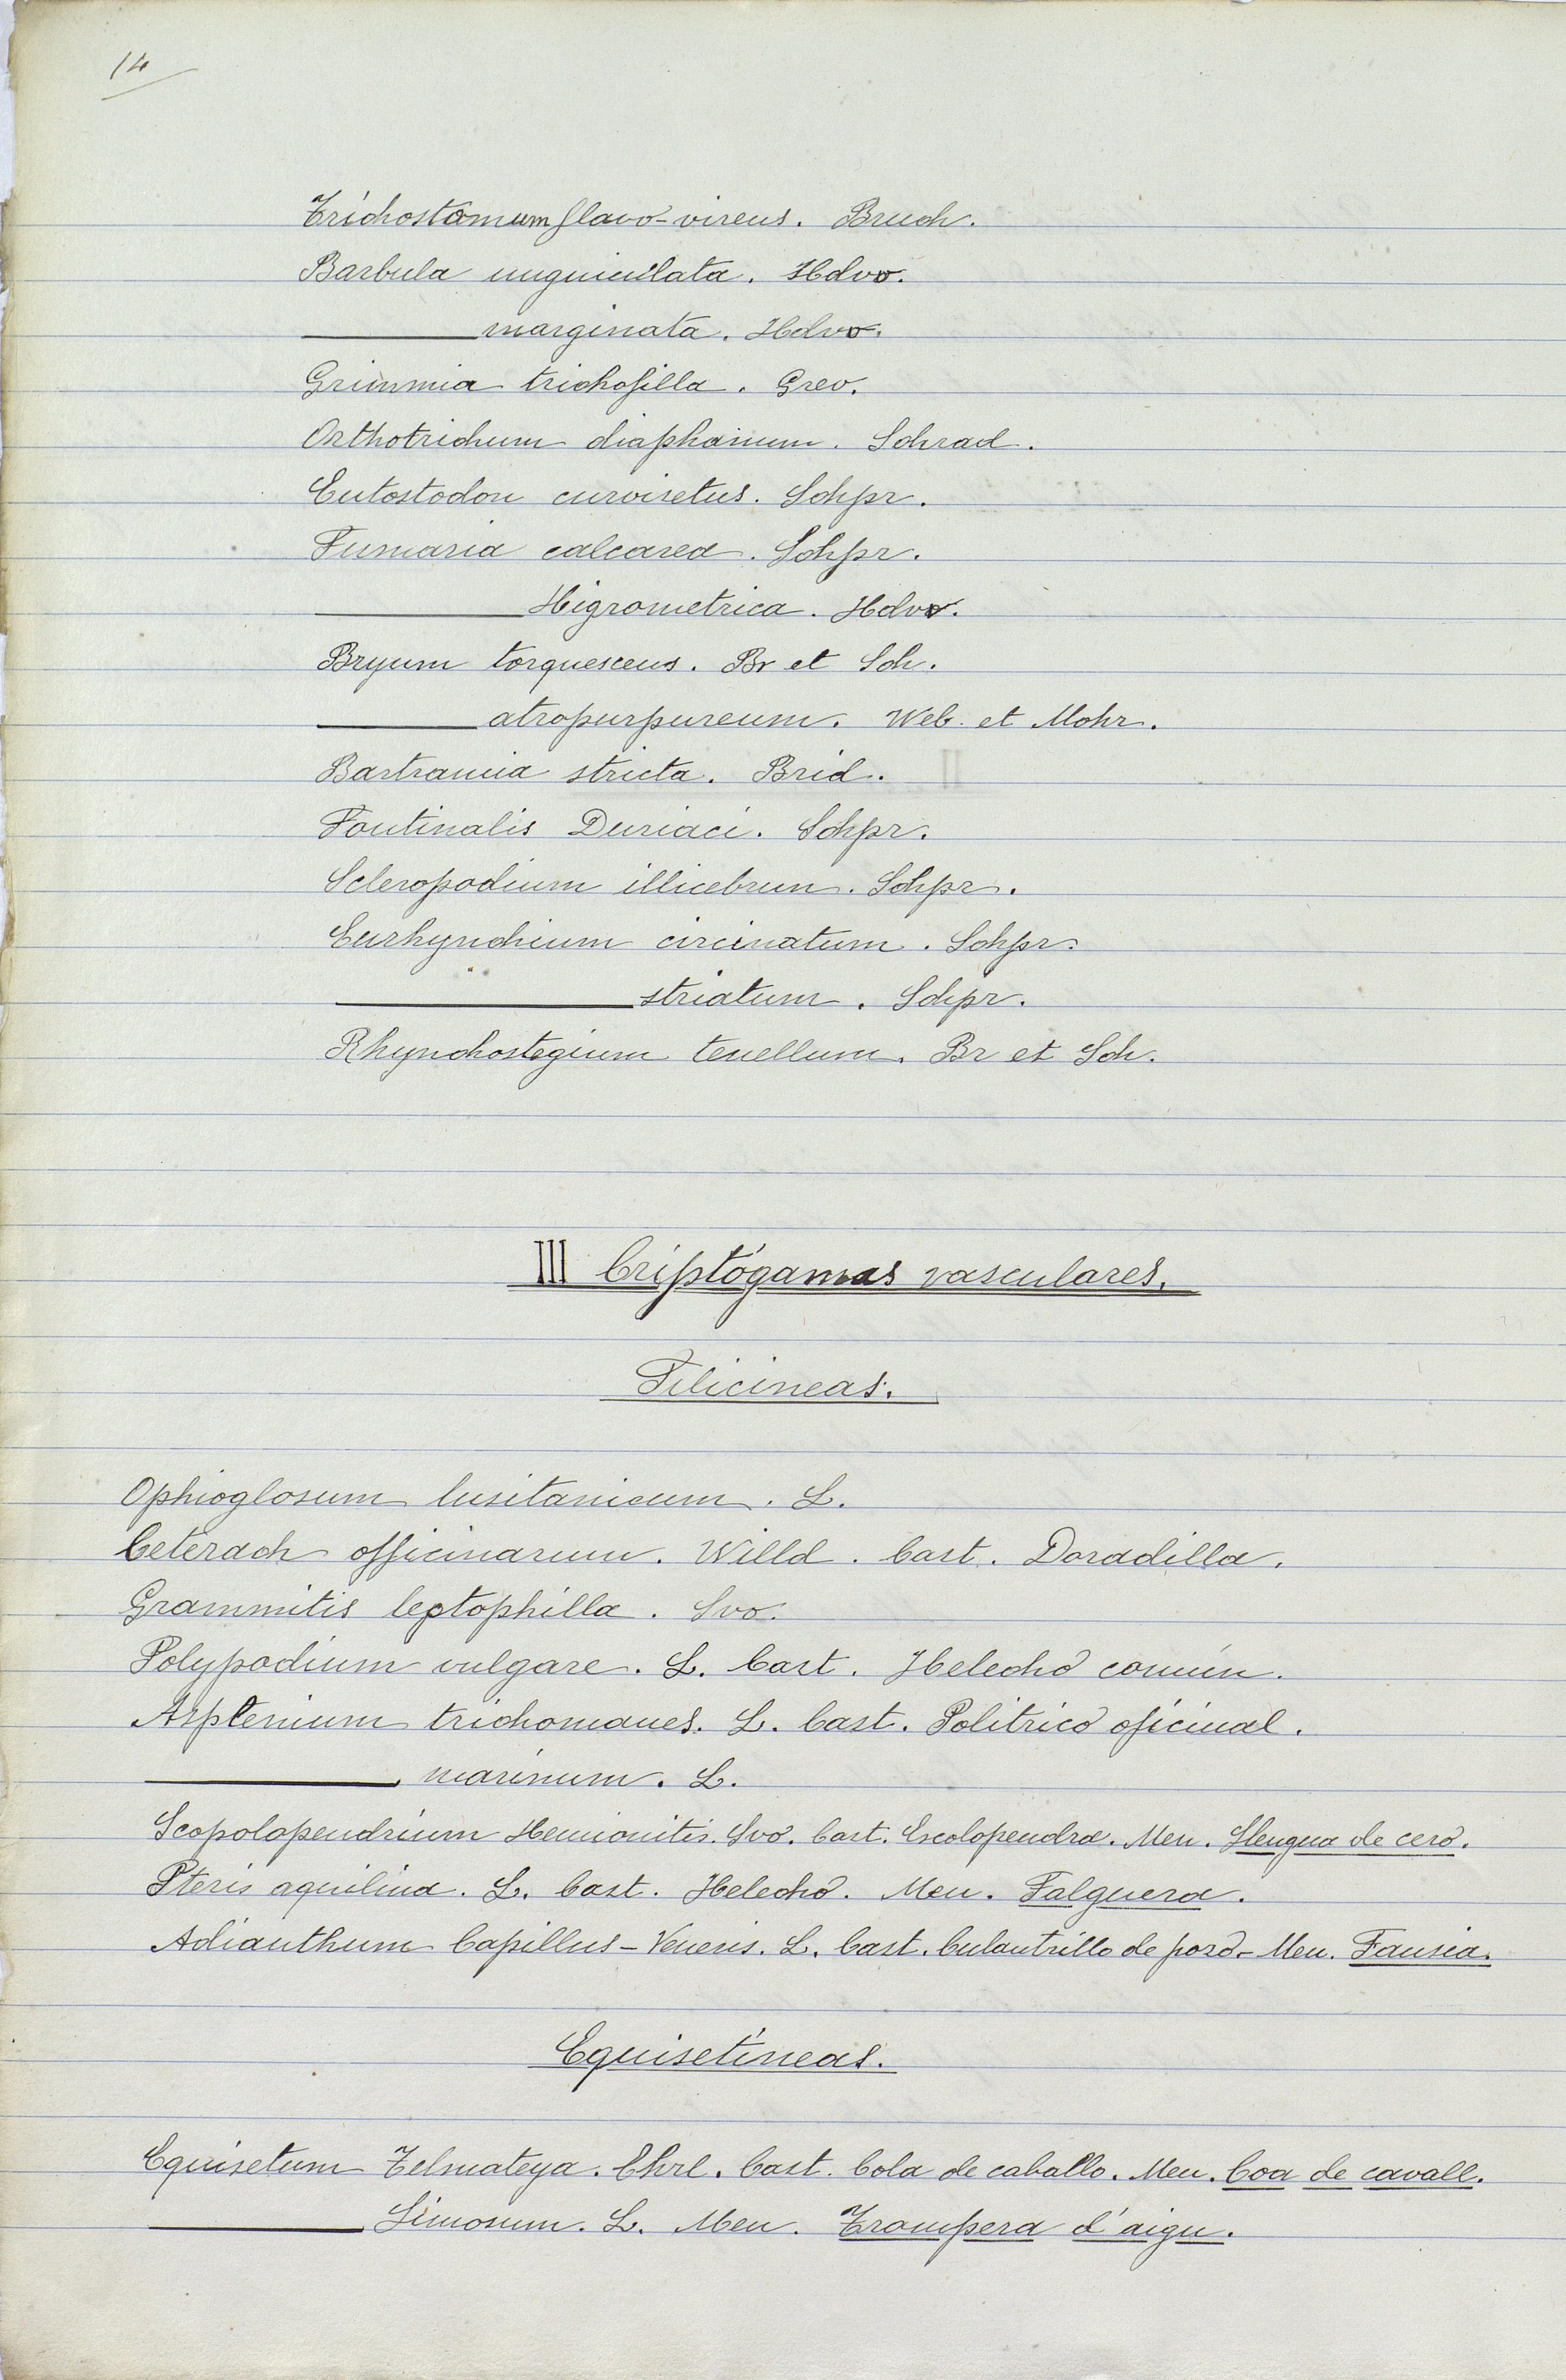 14
Trichostomum flavo-virens. Bruch.
Barbula unguiculata. Hdvo.
——— marginata. Hdvo.
Grimmia trichofilla. Grev.
Orthotrichum diaphanum. Schrad.
Entostodon curvisetus. Schpr.
Fumaria calcarea. Schpr.
——— Higrometrica. Hdvo.
Bryum torquescens. Br et Sch.
——— atropurpureum. Web. et Mohr.
Bartramia stricta. Brid.
Fontinalis Duriaci. Schpr.
Scleropodium illicebrum. Schpr.
Eurhynchium circinatum. Schpr.
——— striatum. Schpr.
Rhynchostegium tenellum. Br et Sch.
III Criptógamas vasculares.
Filicineas.
Ophioglosum lusitanicum. L.
Ceterach officinarum. Willd. Cast. Doradilla.
Grammitis leptophilla. Svo.
Polypodium vulgare. L. Cast. Helecho común.
Asplenium trichomanes. L. Cast. Politrico oficinal.
——— marinum. L.
Scopolopendrium Hemionitis. Svo. Cast. Escolopendra. Men. Llengua de cero.
Pteris aquilina. L. Cast. Helecho. Men. Falguera.
Adianthum Capillus-Veneris. L. Cast. Culantrillo de pozo- Men. Fausia.
Equisetineas.
Equisetum Telmateya. Ehrl. Cast. Cola de caballo. Men. Coa de cavall.
——— Limosum. L. Men. Trampera d'aigu.